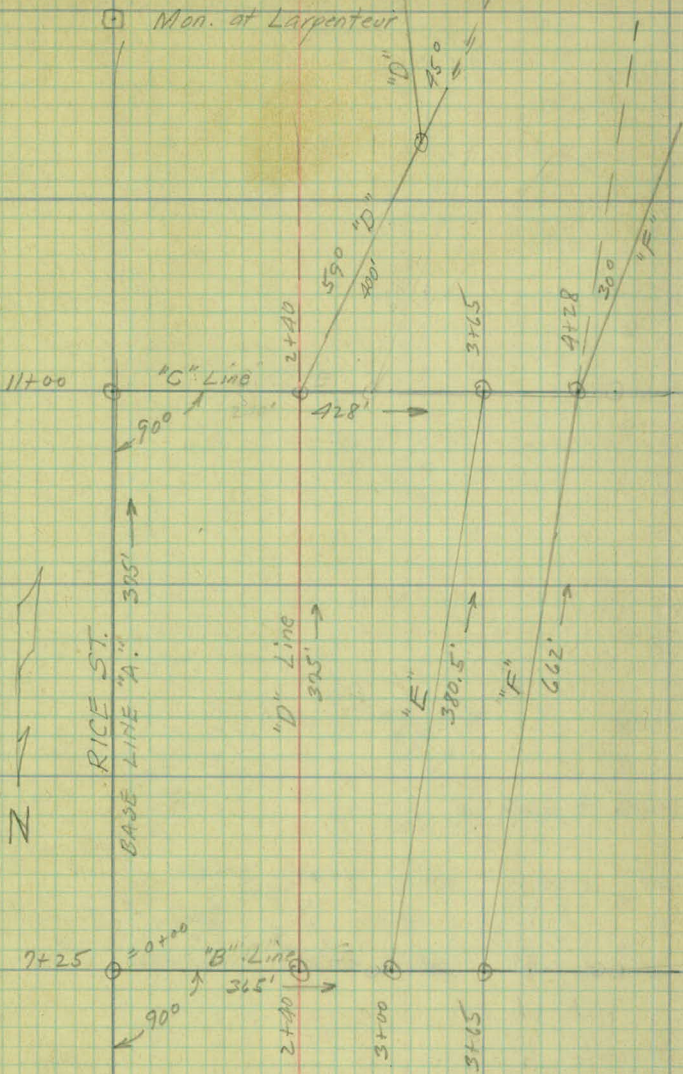 Mon. at Larpenteur
"D"
45°
"D"
59°
400'
"F"
30°
2+40
3+65
4+28
11+00
"C" Line
428'
90°
375'
RICE ST.
BASE LINE "A."
"D" Line
375'
"E"
380.5'
"F"
662'
N
7+25
= 0+00
"B" Line
365'
90°
2+40
3+00
3+65